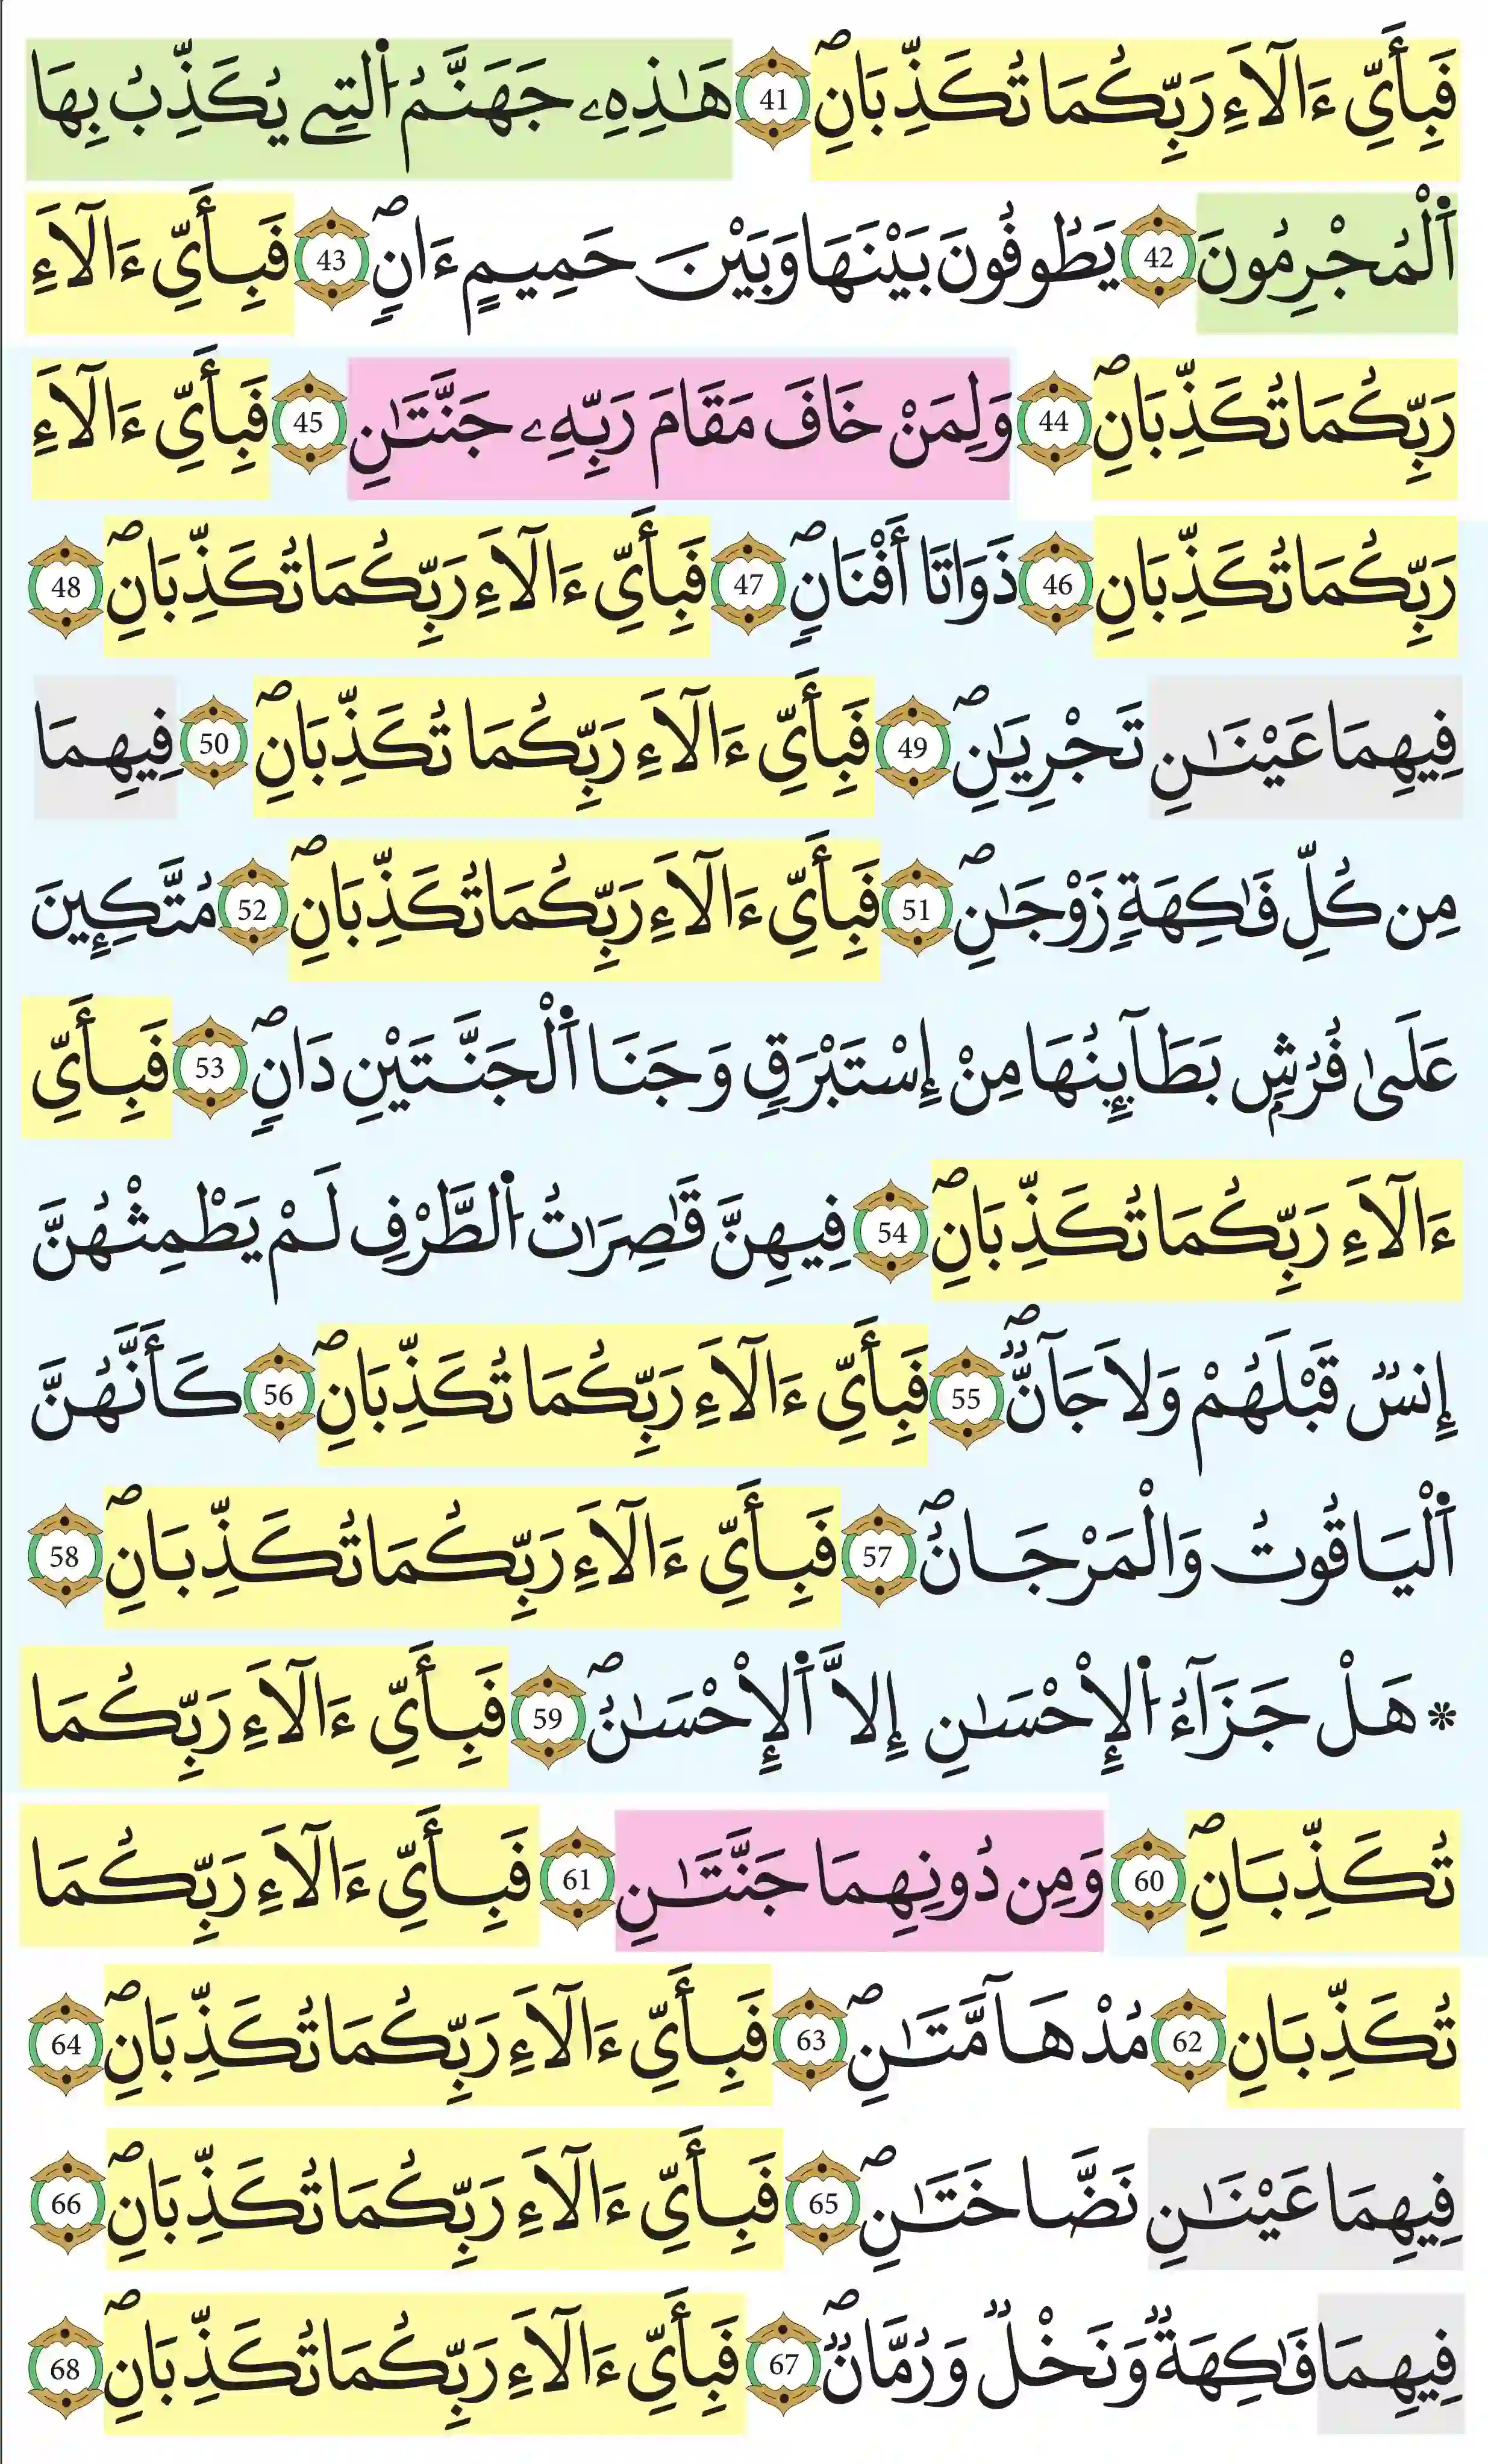 فَبِأَيِّ ءَالَآءِ رَبِّكُمَا تُكَذِّبَانِۖ 41 هَٰذِهِۦ جَهَنَّمُ اُ۬لتِے يُكَذِّبُ بِهَا
اَ۬لْمُجْرِمُونَ 42 يَطُوفُونَ بَيْنَهَا وَبَيْنَ حَمِيمٍ ءَانٖۖ 43 فَبِأَيِّ ءَالَآءِ
رَبِّكُمَا تُكَذِّبَانِۖ 44 وَلِمَنْ خَافَ مَقَامَ رَبِّهِۦ جَنَّتَٰنِ 45 فَبِأَيِّ ءَالَآءِ
رَبِّكُمَا تُكَذِّبَانِ 46 ذَوَاتَا أَفْنَانٖۖ 47 فَبِأَيِّ ءَالَآءِ رَبِّكُمَا تُكَذِّبَانِۖ 48
فِيهِمَا عَيْنَٰنِ تَجْرِيَٰنِۖ 49 فَبِأَيِّ ءَالَآءِ رَبِّكُمَا تُكَذِّبَانِۖ 50 فِيهِمَا
مِن كُلِّ فَٰكِهَةٖ زَوْجَٰنِۖ 51 فَبِأَيِّ ءَالَآءِ رَبِّكُمَا تُكَذِّبَانِۖ 52 مُتَّكِـِٕينَ
عَلَىٰ فُرُشِۢ بَطَآئِنُهَا مِنْ إِسْتَبْرَقٖ وَجَنَا اَ۬لْجَنَّتَيْنِ دَانٖۖ 53 فَبِأَيِّ
ءَالَآءِ رَبِّكُمَا تُكَذِّبَانِۖ 54 فِيهِنَّ قَٰصِرَٰتُ اُ۬لطَّرْفِ لَمْ يَطْمِثْهُنَّ
إِنسٞ قَبْلَهُمْ وَلَا جَآنّٞۖ 55 فَبِأَيِّ ءَالَآءِ رَبِّكُمَا تُكَذِّبَانِۖ 56 كَأَنَّهُنَّ
اَ۬لْيَاقُوتُ وَالْمَرْجَانُۖ 57 فَبِأَيِّ ءَالَآءِ رَبِّكُمَا تُكَذِّبَانِۖ 58
* هَلْ جَزَآءُ اُ۬لْإِحْسَٰنِ إِلَّا اَ۬لْإِحْسَٰنُۖ 59 فَبِأَيِّ ءَالَآءِ رَبِّكُمَا
تُكَذِّبَانِۖ 60 وَمِن دُونِهِمَا جَنَّتَٰنِ 61 فَبِأَيِّ ءَالَآءِ رَبِّكُمَا
تُكَذِّبَانِ 62 مُدْهَآمَّتَٰنِۖ 63 فَبِأَيِّ ءَالَآءِ رَبِّكُمَا تُكَذِّبَانِۖ 64
فِيهِمَا عَيْنَٰنِ نَضَّاخَتَٰنِۖ 65 فَبِأَيِّ ءَالَآءِ رَبِّكُمَا تُكَذِّبَانِۖ 66
فِيهِمَا فَٰكِهَةٞ وَنَخْلٞ وَرُمَّانٞۖ 67 فَبِأَيِّ ءَالَآءِ رَبِّكُمَا تُكَذِّبَانِۖ 68